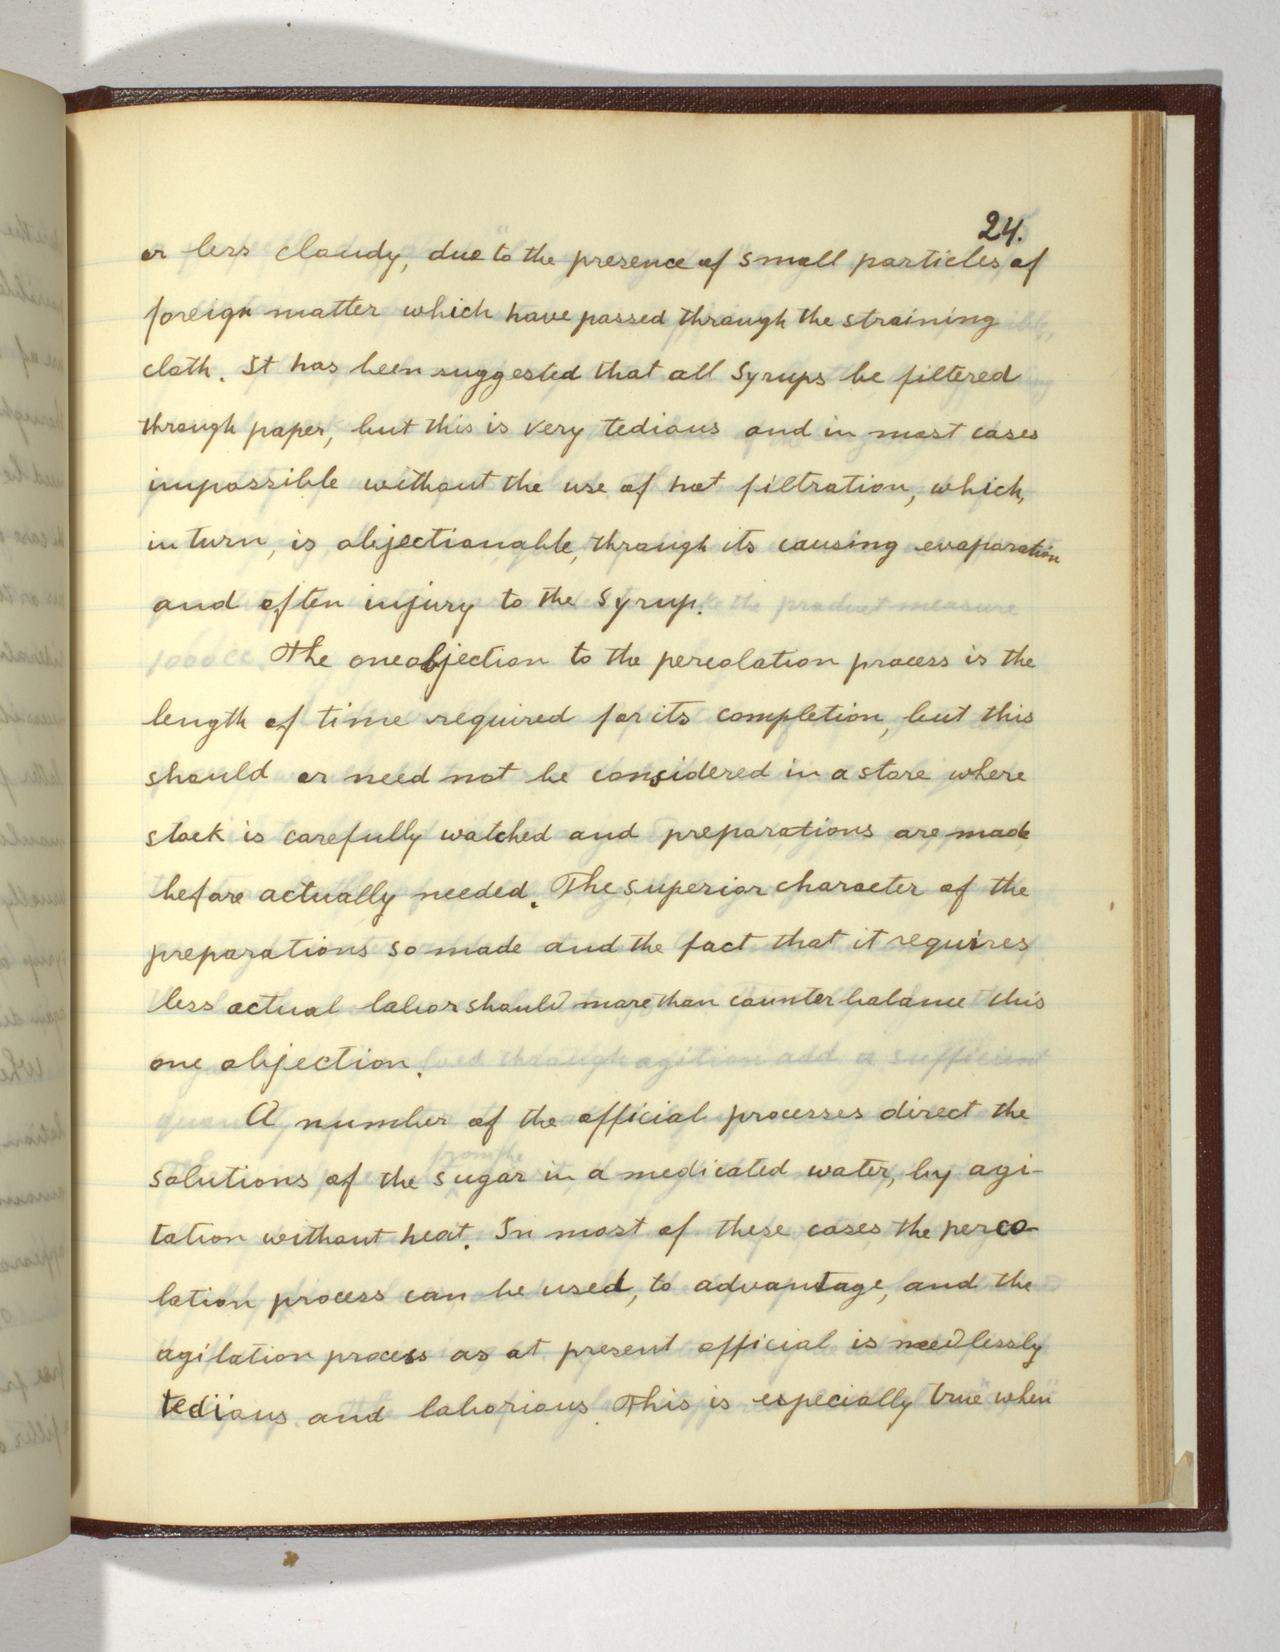 24.
or less cloudy, due to the presence of small particles of
foreign matter which have passed through the straining
cloth. It has been suggested that all Syrups be filtered
through paper, but this is very tedious and in most cases
impossible without the use of hot filtration, which,
in turn, is objectionable, through its causing evaporation
and often injury to the Syrup.
The one objection to the percolation process is the
length of time required for its completion, but this
should or need not be considered in a store where
stock is carefully watched and preparations are made
before actually needed. The superior character of the
preparations so made and the fact that it requires
less actual labor should more than counter balance this
one objection.
A number of the official processes direct the
solutions of the sugar in a medicated water, by agi-
tation without heat. In most of these cases the perco-
lation process can be used, to advantage, and the
agitation process as at present official is needlessly
tedious and laborious. This is especially true when